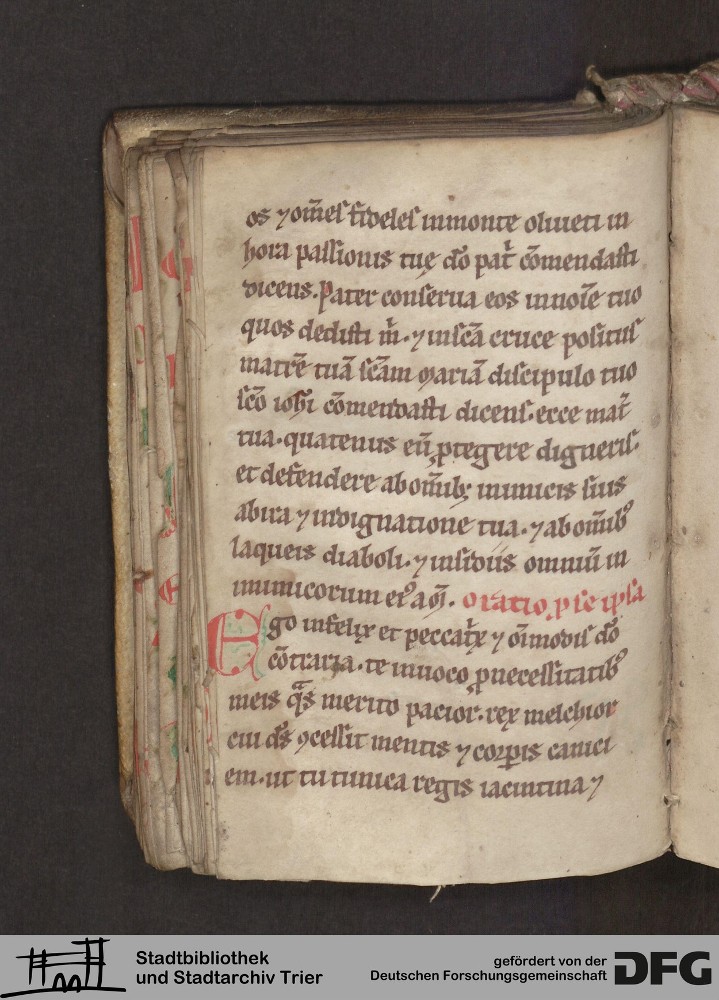 os ⁊ om̄es fideles in monte oliueti in
hora passionis tuę d̄o pat̄ cōmendasti
dicens. Pater conserua eos in noīe tuo
quos dedisti m̄. ⁊ in sc̄a cruce positus
matrē tuā sc̄am mariā discipulo tuo
sc̄o ioh̄i cōmendasti dicens. ecce mat̄
tua. quatenus eū ꝓtegere digneris.
et defendere ab om̄ibꝫ inimicis suis
ab ira ⁊ indignatione tua. ⁊ ab om̄ibꝰ
laqueis diaboli. ⁊ insidiis omniū in
imicorum eiꝰ
oratio ꝓ se ipsa
Ego infelix et peccat̄x ⁊ oīmodis d̄o
cōtraria. te inuoco ꝓ necessitatibꝰ
meis q̄s merito pacior. rex melchior
cui d̄s ꝯcessit mentis ⁊ corꝑis canici
em. ut tu tunica regis iacintina ⁊
Stadtbibliothek
und Stadtarchiv Trier
gefördert von der
Deutschen Forschungsgemeinschaft
DFG